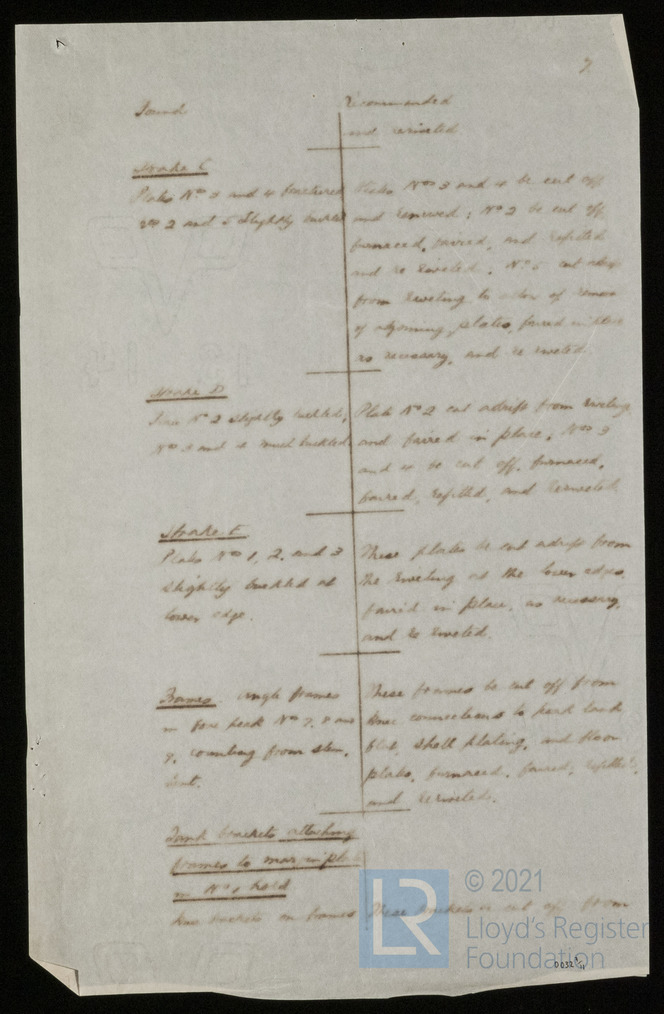 7
Found
Recommended
and riveted
Strake C
Plates Nos 3 and 4 fractured
Nos 2 and 5 slightly buckled
Plates Nos 3 and 4 be cut off
and renewed; No 2 be cut off,
furnaced, faired, and refitted
and re riveted; No 5 cut adrift
from riveting to allow of removal
of adjoining plates, faired in place
as necessary, and re riveted.
Strake D
No 2 slightly buckled,
Nos 3 and 4 much buckled.
Plate No 2 cut adrift from riveting
and faired in place, Nos 3
and 4 be cut off, furnaced,
faired, refitted, and reriveted
Strake E
Plates Nos 1, 2, and 3
slightly buckled at
lower edge.
These plates be cut adrift from
the riveting at the lower edges,
faired in place, as necessary,
and re riveted.
Frames. angle frames
in fore peak Nos 7, 8 and
9, counting from stem,
bent.
These frames be cut off from
knee connections to peak tank
flat, shell plating, and floor
plates, furnaced, faired, refitted,
and reriveted.
Tank brackets attaching
frames to margin plate
in No 1 hold
brackets on frames
These brackets be cut off from
LR
© 2021
Lloyd's Register
Foundation